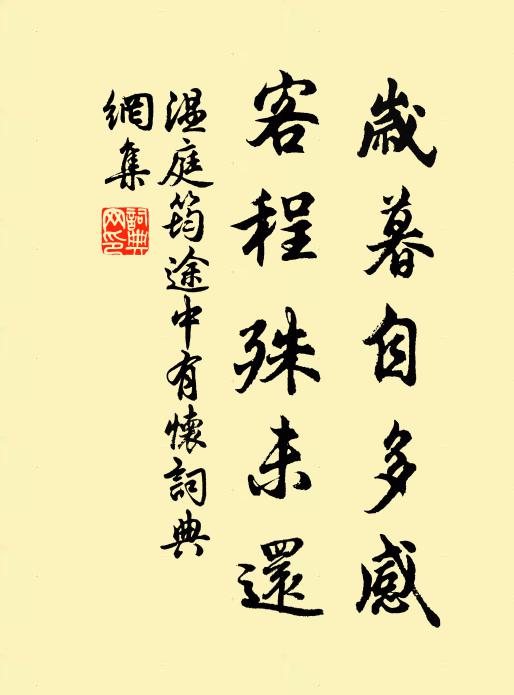 歲暮自多感
客程殊未還
温庭筠途中有懷詞典
網集
詞典網印